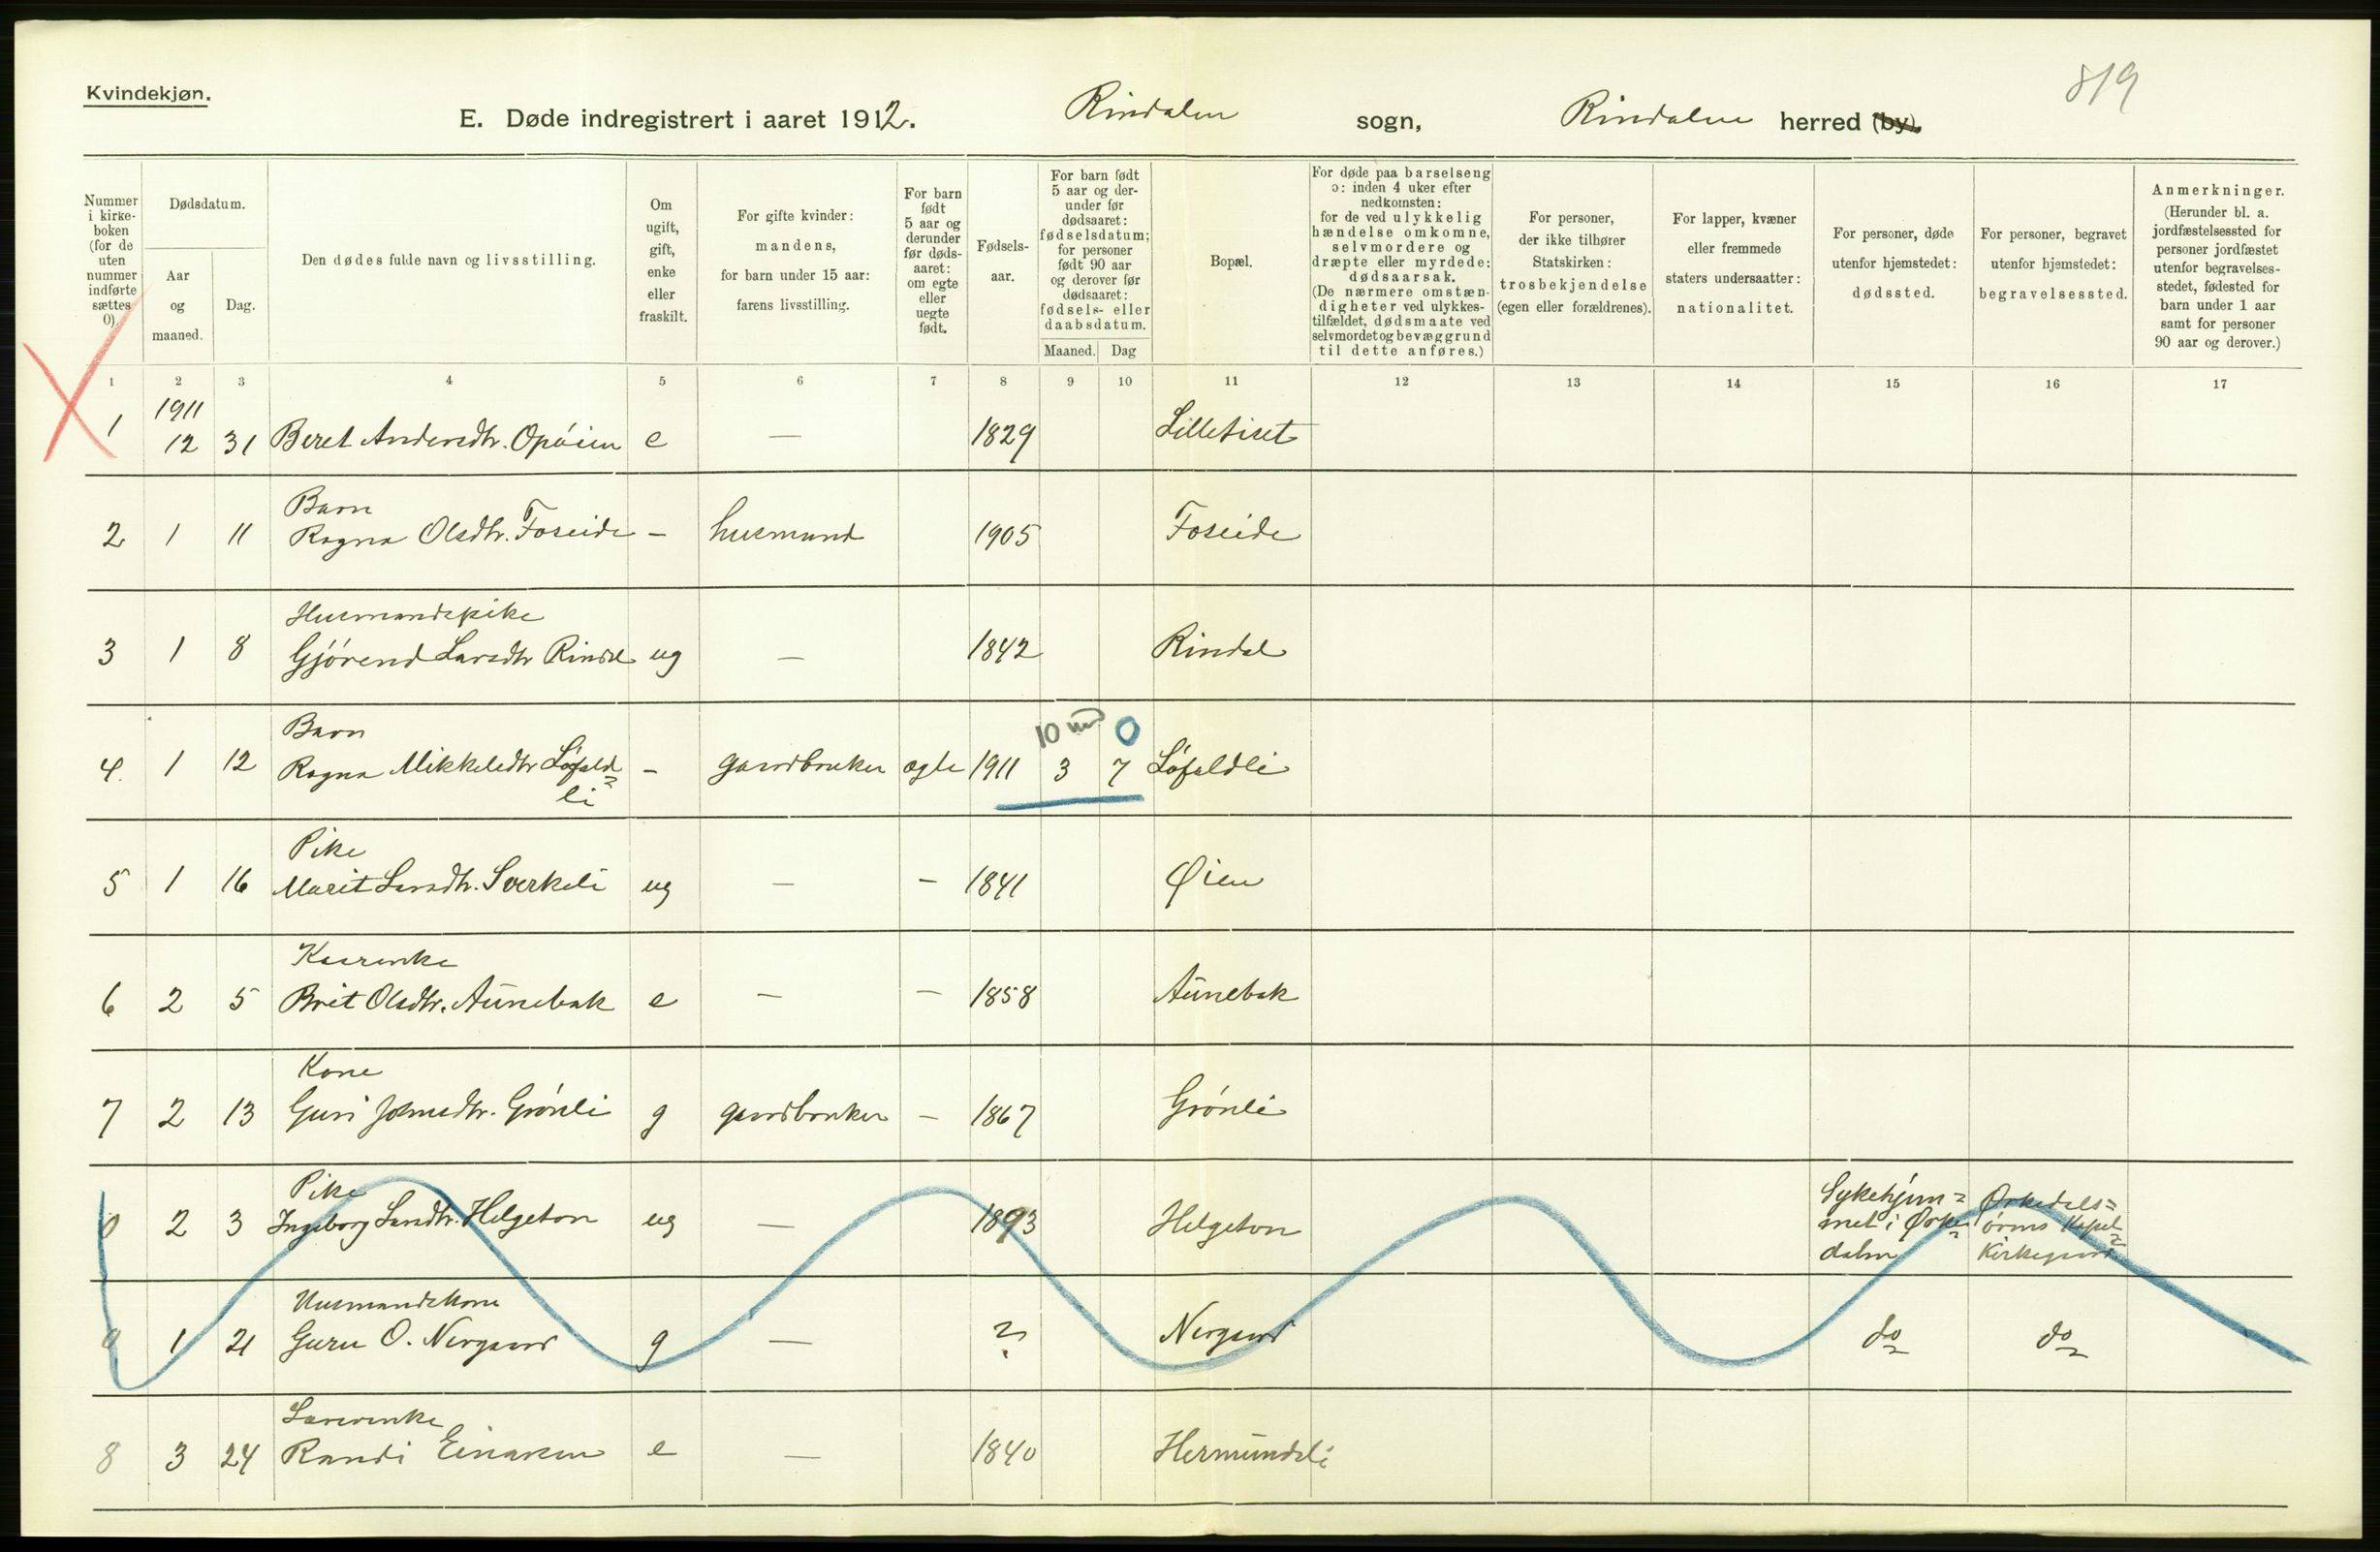 Kvindekjøn.
819
E. Døde indregistrert i aaret 1912. Rindalen sogn, Rindalen herred (by).
Nummer i kirkeboken (for de uten nummer indførte sættes 0).
Dødsdatum.
Aar og maaned.
Dag.
Den dødes fulde navn og livsstilling.
Om ugift, gift, enke eller fraskilt.
For gifte kvinder: mandens, for barn under 15 aar: farens livsstilling.
For barn født 5 aar og derunder før dødsaaret: om egte eller uegte født.
Fødsels-aar.
For barn født 5 aar og derunder før dødsaaret: fødselsdatum; for personer født 90 aar og derover før dødsaaret: fødsels- eller daabsdatum.
Maaned. Dag
Bopæl.
For døde paa barselseng ɔ: inden 4 uker efter nedkomsten: for de ved ulykkelig hændelse omkomne, selvmordere og dræpte eller myrdede: dødsaarsak. (De nærmere omstændigheter ved ulykkestilfældet, dødsmaate ved selvmordet og bevæggrund til dette anføres.)
For personer, der ikke tilhører Statskirken: trosbekjendelse (egen eller forældrenes).
For lapper, kvæner eller fremmede staters undersaatter: nationalitet.
For personer, døde utenfor hjemstedet: dødssted.
For personer, begravet utenfor hjemstedet: begravelsessted.
Anmerkninger. (Herunder bl. a. jordfæstelsessted for personer jordfæstet utenfor begravelsesstedet, fødested for barn under 1 aar samt for personer 90 aar og derover.)
1 2 3 4 5 6 7 8 9 10 11 12 13 14 15 16 17
1911
1 12 31 Beret Andersdtr. Opøien e — 1829 Lillefiset
Barn
2 1 11 Ragna Olsdtr. Foseide - husmand 1905 Foseide
Husmandspike
3 1 8 Gjørend Larsdtr Rindal ug — 1842 Rindal
Barn 10 md 0
4. 1 12 Ragna Mikkelsdtr Løfald= - gaardbruker egte 1911 3 7 Løfaldli
li
Pike
5 1 16 Marit Larsdtr. Sverkeli ug — - 1841 Øien
Kaarenke
6 2 5 Brit Olsdtr. Aunebak e — - 1858 Aunebak
Kone
7 2 13 Guri Johnsdtr. Grønli g gaardbruker - 1867 Grønli
Pike Sykehjem= Orkedals=
0 2 3 Ingeborg Larsdtr. Helgeton ug — 1893 Helgeton met i Orke= ørens Kapel=
dalen Kirkegaard
Husmandskone
0 1 21 Guru O. Nergaard g — ? Nergaard do do
8 3 24 Randi Einarsen e — 1840 Hermundsli